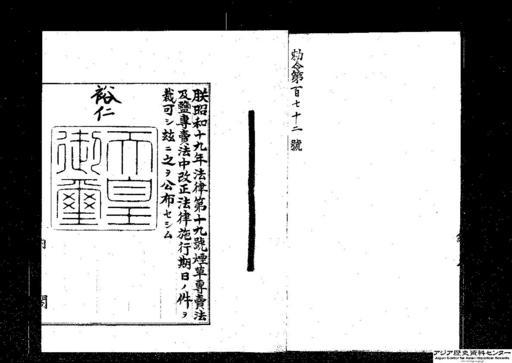 勅令第百七十二號
朕昭和十九年法律第十九號煙草專賣法
及鹽專賣法中改正法律施行期日ノ件ヲ
裁可シ玆ニ之ヲ公布セシム
裕仁
天皇
御璽
内閣
アジア歴史資料センター
Japan Center for Asian Historical Records